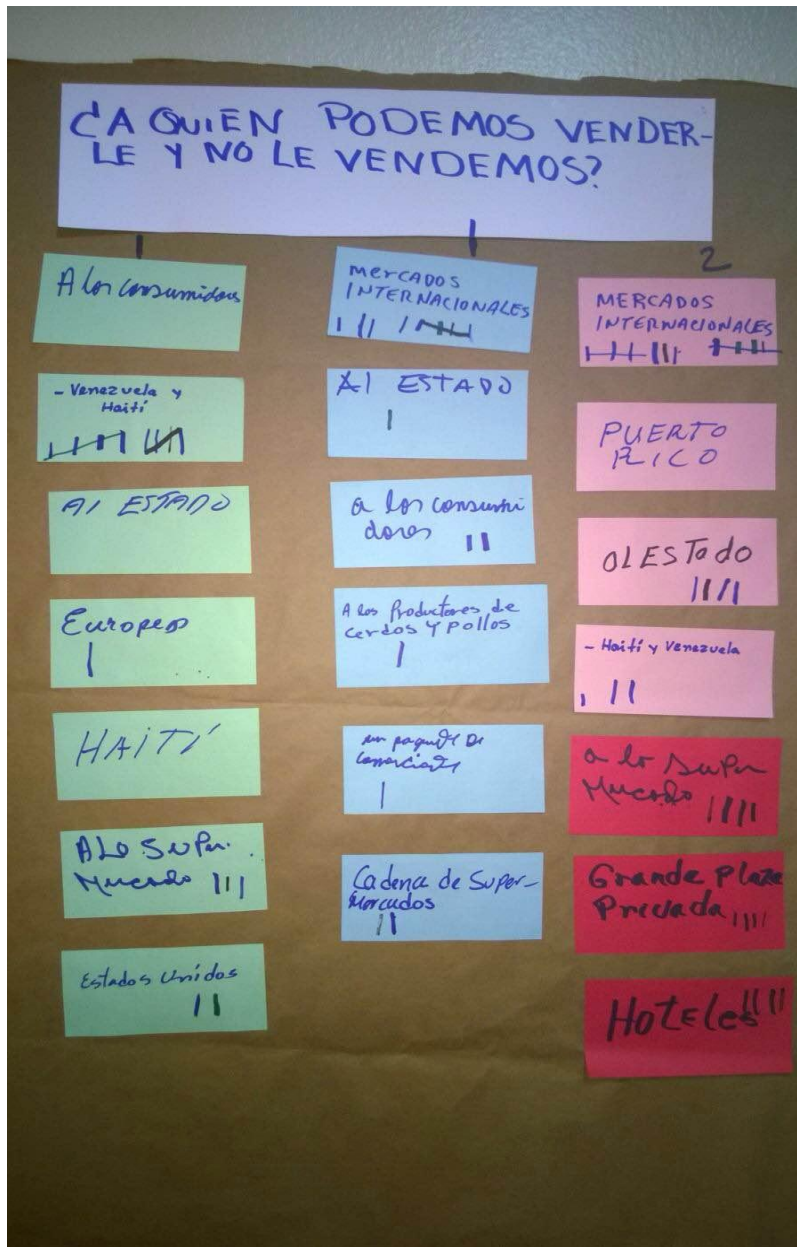 ¿A QUIEN PODEMOS VENDER-
LE Y NO LE VENDEMOS?
A los consumidores
- Venezuela y
Haití
Al ESTADO
Europeo
HAITÍ
A Lo SuPer.
Mercado
Estados Unidos
MERCADOS
INTERNACIONALES
Al ESTADO
a los consumi
dores
A los Productores de
cerdos y pollos
un De
Cadena de Super-
Mercados
2
MERCADOS
INTERNACIONALES
PUERTO
RICO
Al ESTado
- Haití y Venezuela
a lo SuPer
Mercado
Grande Plaza
Privada
HotEles